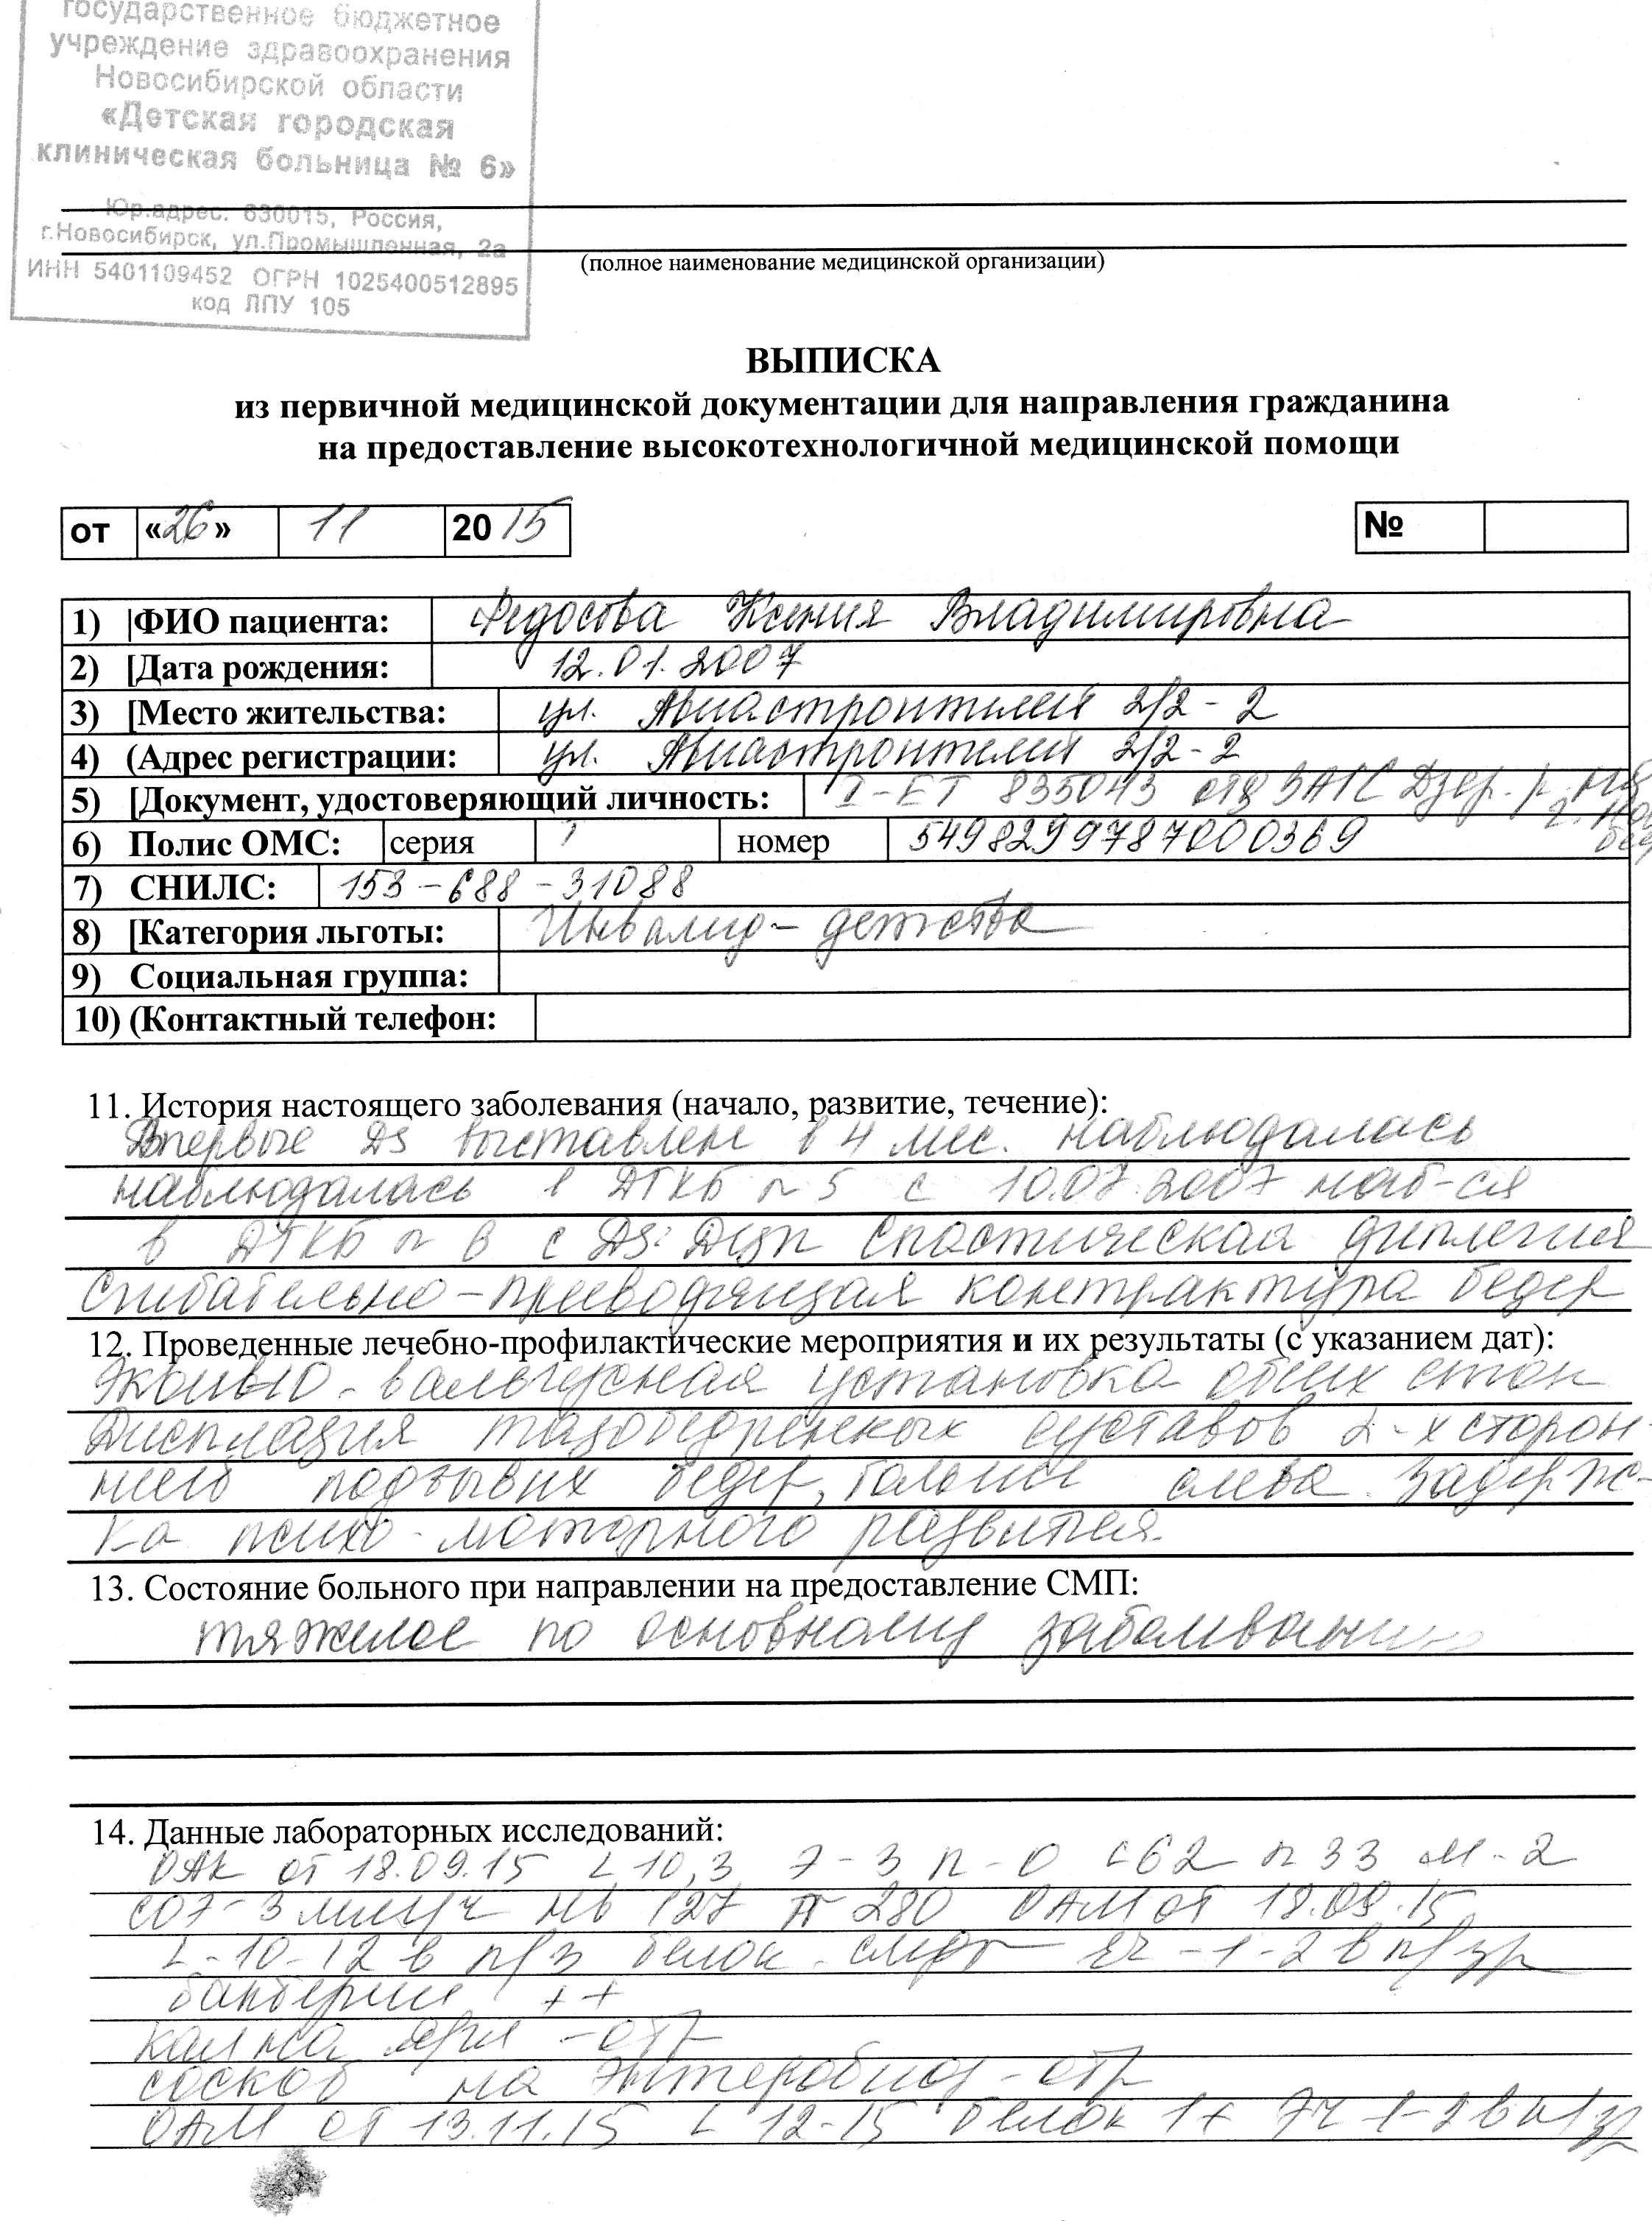 государственное бюджетное
учреждение здравоохранения
Новосибирской области
«Детская городская
клиническая больница № 6»
Юр.адрес: 630015, Россия,
г.Новосибирск, ул.Промышленная, 2а
ИНН 5401109452 ОГРН 1025400512895
код ЛПУ 105
(полное наименование медицинской организации)
ВЫПИСКА
из первичной медицинской документации для направления гражданина
на предоставление высокотехнологичной медицинской помощи
от «26» 11 2015 №
1) |ФИО пациента: Федосова Ксения Владимировна
2) [Дата рождения: 12.01.2007
3) [Место жительства: ул. Авиастроителей 2/2-2
4) (Адрес регистрации: ул. Авиастроителей 2/2-2
5) [Документ, удостоверяющий личность: I-ЕТ 835043 отд ЗАГС Дзер. р.
6) Полис ОМС: серия номер 5498299787000369
7) СНИЛС: 153-688-31088
8) [Категория льготы: Инвалид-детства
9) Социальная группа:
10) (Контактный телефон:
11. История настоящего заболевания (начало, развитие, течение):
Впервые DS выставлен в 4 мес. наблюдалась
наблюдалась в ДГКБ n 5 с 10.07.2007 наб-ся
в ДГКБ n 6 с DS: ДЦП Спастическая диплегия
Сгибательно-приводящая контрактура бедер
12. Проведенные лечебно-профилактические мероприятия и их результаты (с указанием дат):
Эквино-вальгусная установка обеих стоп
Дисплазия тазобедренных суставов 2-х сторон-
ний подвывих бедер, больше слева. Задерж-
ка психо-моторного развития.
13. Состояние больного при направлении на предоставление СМП:
тяжелое по основному заболеванию
14. Данные лабораторных исследований:
ОАК от 18.09.15 L 10,3 э-3 п-0 с 62 л 33 м-2
СОЭ-3 мм/ч Нb 127 Т 280 ОАМ от 18.09.15
L-10-12 в п/з белок-след эч-1-2 в п/зр
бактерии ++
кал на я/гл -отр
соскоб на энтеробиоз-отр
ОАМ от 13.11.15 L 12-15 белок 1+ Эч 1-2 в п/зр